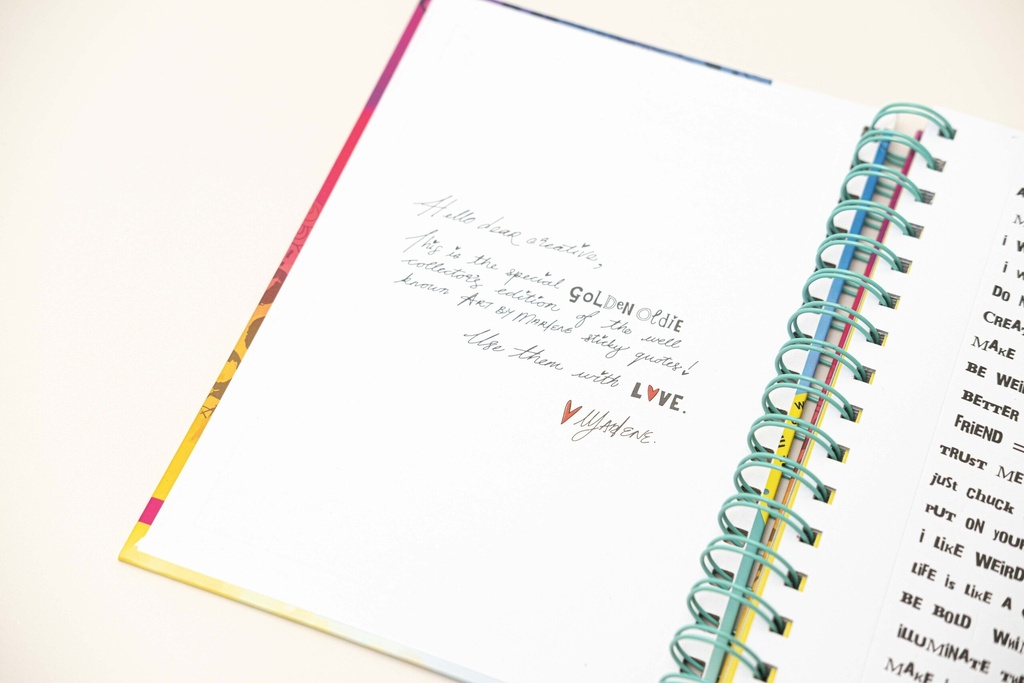 Hello dear creative,
This is the special GOLDEN OLDIE
collectors edition of the well
known ART BY MARLENE sticky quotes!
Use them with LOVE.
MARLENE.
i W
i w
DO N
CREA
MAKE
BE WEI
BETTER
FRiEND =
TRUST ME
just chuck
PUT ON YOUR
i LiKE WEIRD
LiFE is LiKE A
BE BOLD WHi
iLLUMiNATE TH
MAKE